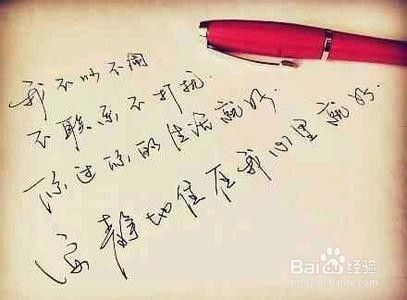 我不吵不闹
不联系不打扰
你过你的生活就好
安静地住在我心里就好
Baidu经验